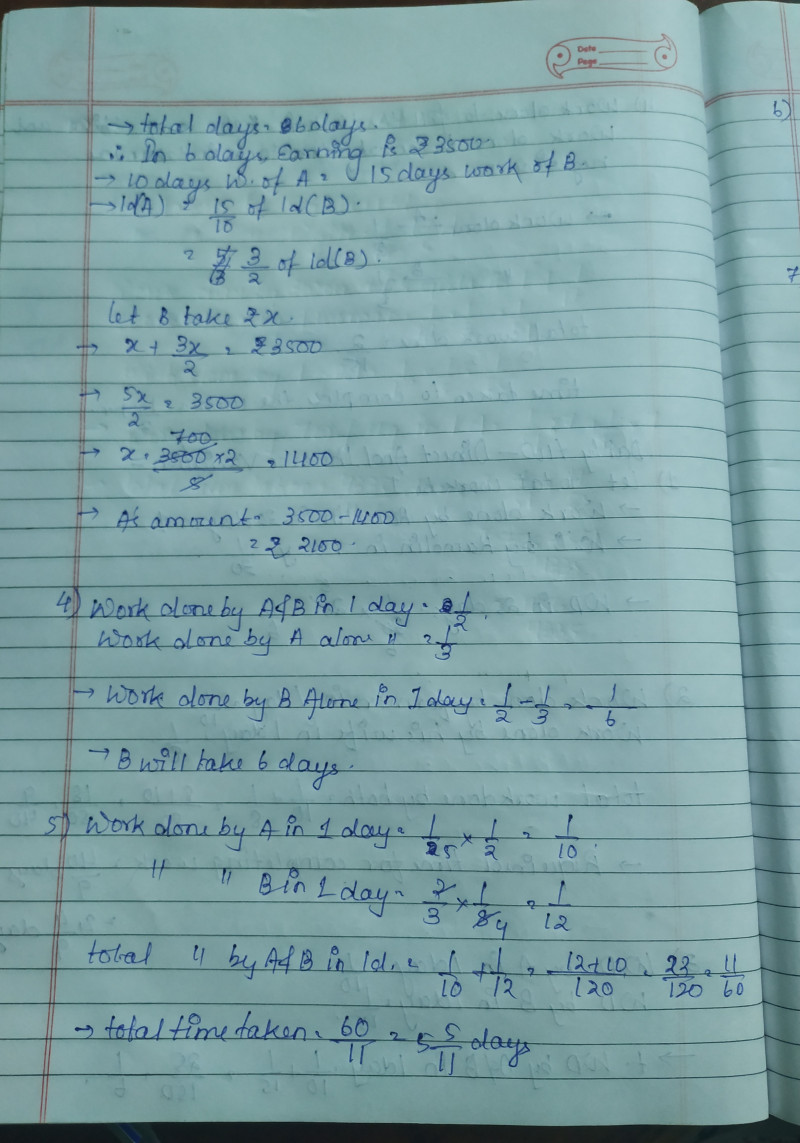 Date
Page
→ total days = 6 days.
∴ In 6 days, Earning is ₹3500.
→ 10 days W. of A = 15 days work of B.
→ 1d(A) = 15/10 of 1d(B).
= 3/2 of 1d(B).
let B take ₹x.
→ x + 3x/2 = ₹3500
→ 5x/2 = 3500
700
→ x = 3500×2/5 = 1400
→ A's amount = 3500 - 1400
= ₹ 2100.
4) Work done by A&B in 1 day = 1/2.
Work done by A alone " = 1/3
→ Work done by B Alone in 1 day = 1/2 - 1/3 = 1/6
→ B will take 6 days.
5) Work done by A in 1 day = 1/5 × 1/2 = 1/10.
" " B in 1 day = 2/3 × 1/8 4 = 1/12
total " by A&B in 1d. = 1/10 + 1/12 = 12+10/120 = 22/120 = 11/60
→ total time taken = 60/11 = 5 5/11 days
6)
7